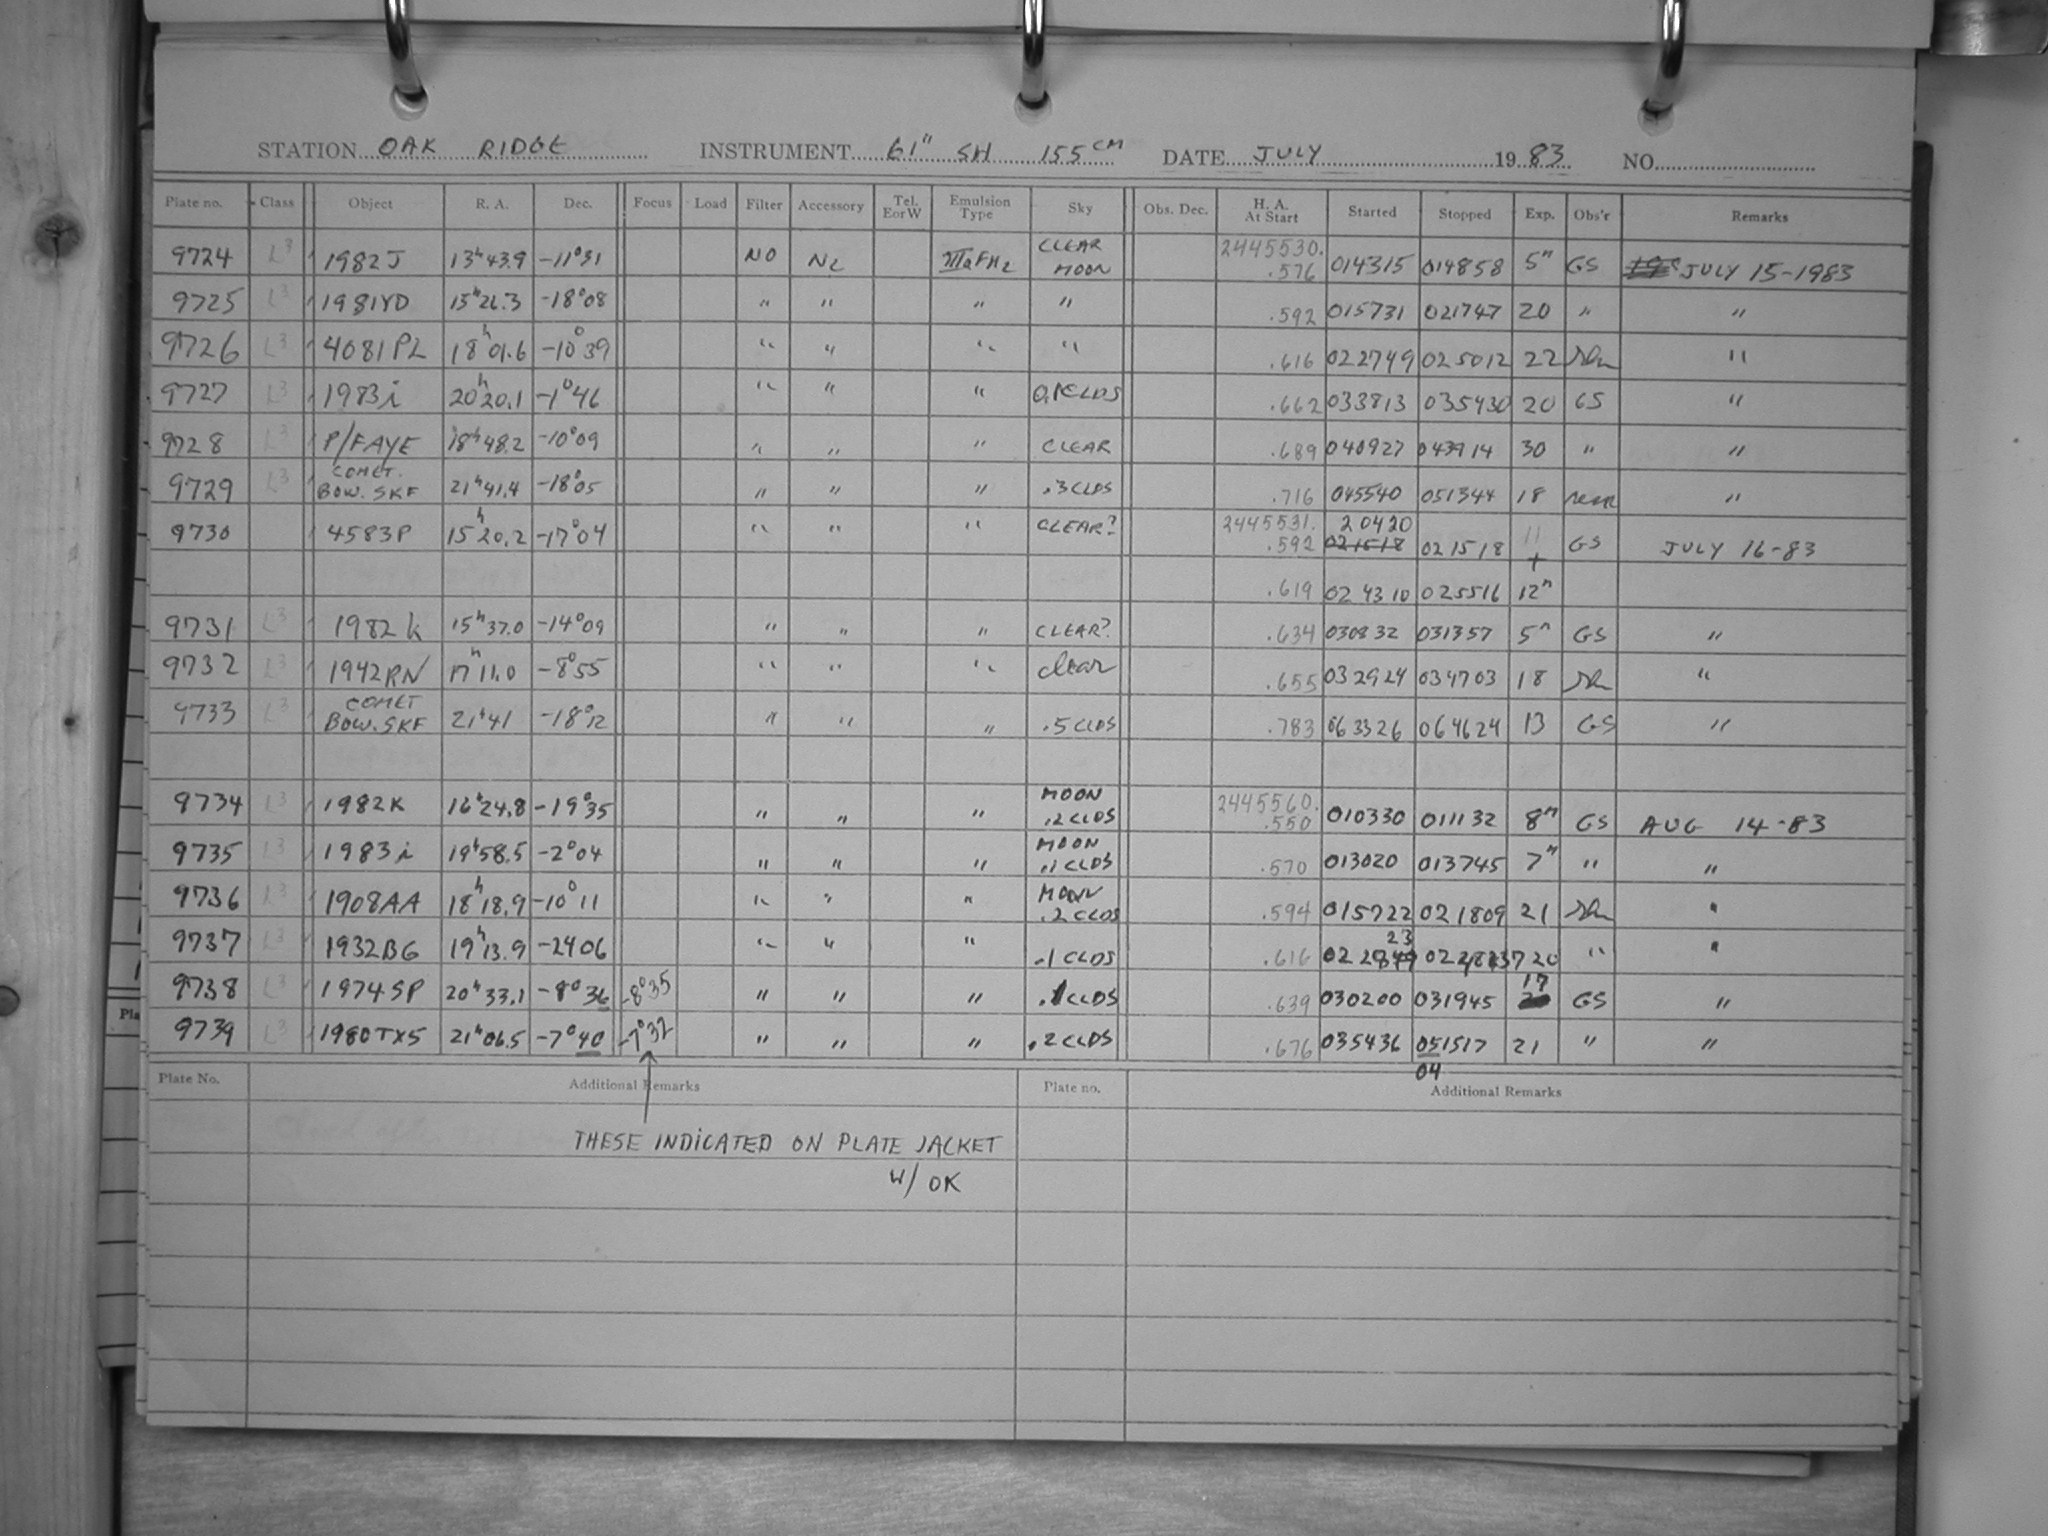 STATION OAK RIDGE INSTRUMENT 61" SH 155 CM DATE JULY 1983 NO.
Plate no. Class Object R. A. Dec. Focus Load Filter Accessory Tel. E or W Emulsion Type Sky Obs. Dec. H. A. At Start Started Stopped Exp. Obs'r Remarks
9724 L3 1982J 13h43.9 -11°31 NO N2 IIIaFH2 CLEAR MOON 2445530. .576 014315 014858 5m GS JULY 15-1983
9725 L3 1981YD -18°08 " " " " .592 015731 021747 20 " "
9726 L3 4081PL 18h01.6 -10°39 " " " " .616 022749 025012 22 "
9727 L3 1983i 20h20.1 -1°46 " " " 0.1CLDS .662 033813 035430 20 GS "
9728 L3 P/FAYE 18h48.2 -10°09 " " " CLEAR .689 040927 043914 30 " "
9729 L3 COMET. BOW. SKF 21h41.4 -18°05 " " " .3CLDS .716 045540 051344 18 "
9730 4583P 15h20.2 -17°04 " " " CLEAR? 2445531. .592 20420 021518 021518 11 + GS JULY 16-83
.619 024310 025516 12m
9731 L3 1982K 15h37.0 -14°09 " " " CLEAR? .634 030832 031357 5m GS "
9732 L3 1942RN 17h11.0 -8°55 " " " clear .655 032924 034703 18 "
9733 L3 COMET BOW.SKF 21h41 -18°12 " " " .5CLDS .783 063326 064624 13 GS "
9734 L3 1982K 16h24.8 -19°35 " " " MOON .2CLDS 2445560. .550 010330 011132 8m GS AUG 14-83
9735 L3 1983i 19h58.5 -2°04 " " " MOON .1CLDS .570 013020 013745 7m " "
9736 L3 1908AA 18h18.9 -10°11 " " " MOON .2CLDS .594 015722 021809 21 "
9737 L3 1932BG 19h13.9 -2406 " " " .1CLDS .616 23 20 " "
9738 L3 1974SP 20h33.1 -8°36 -8°35 " " " .1CLDS .639 030200 031945 17 GS "
9739 L3 1980TX5 21h06.5 -7°40 -7°32 " " " .2CLDS .676 035436 051517 21 " "
04
Plate No. Additional Remarks Plate no. Additional Remarks
THESE INDICATED ON PLATE JACKET
W/ OK
Pla